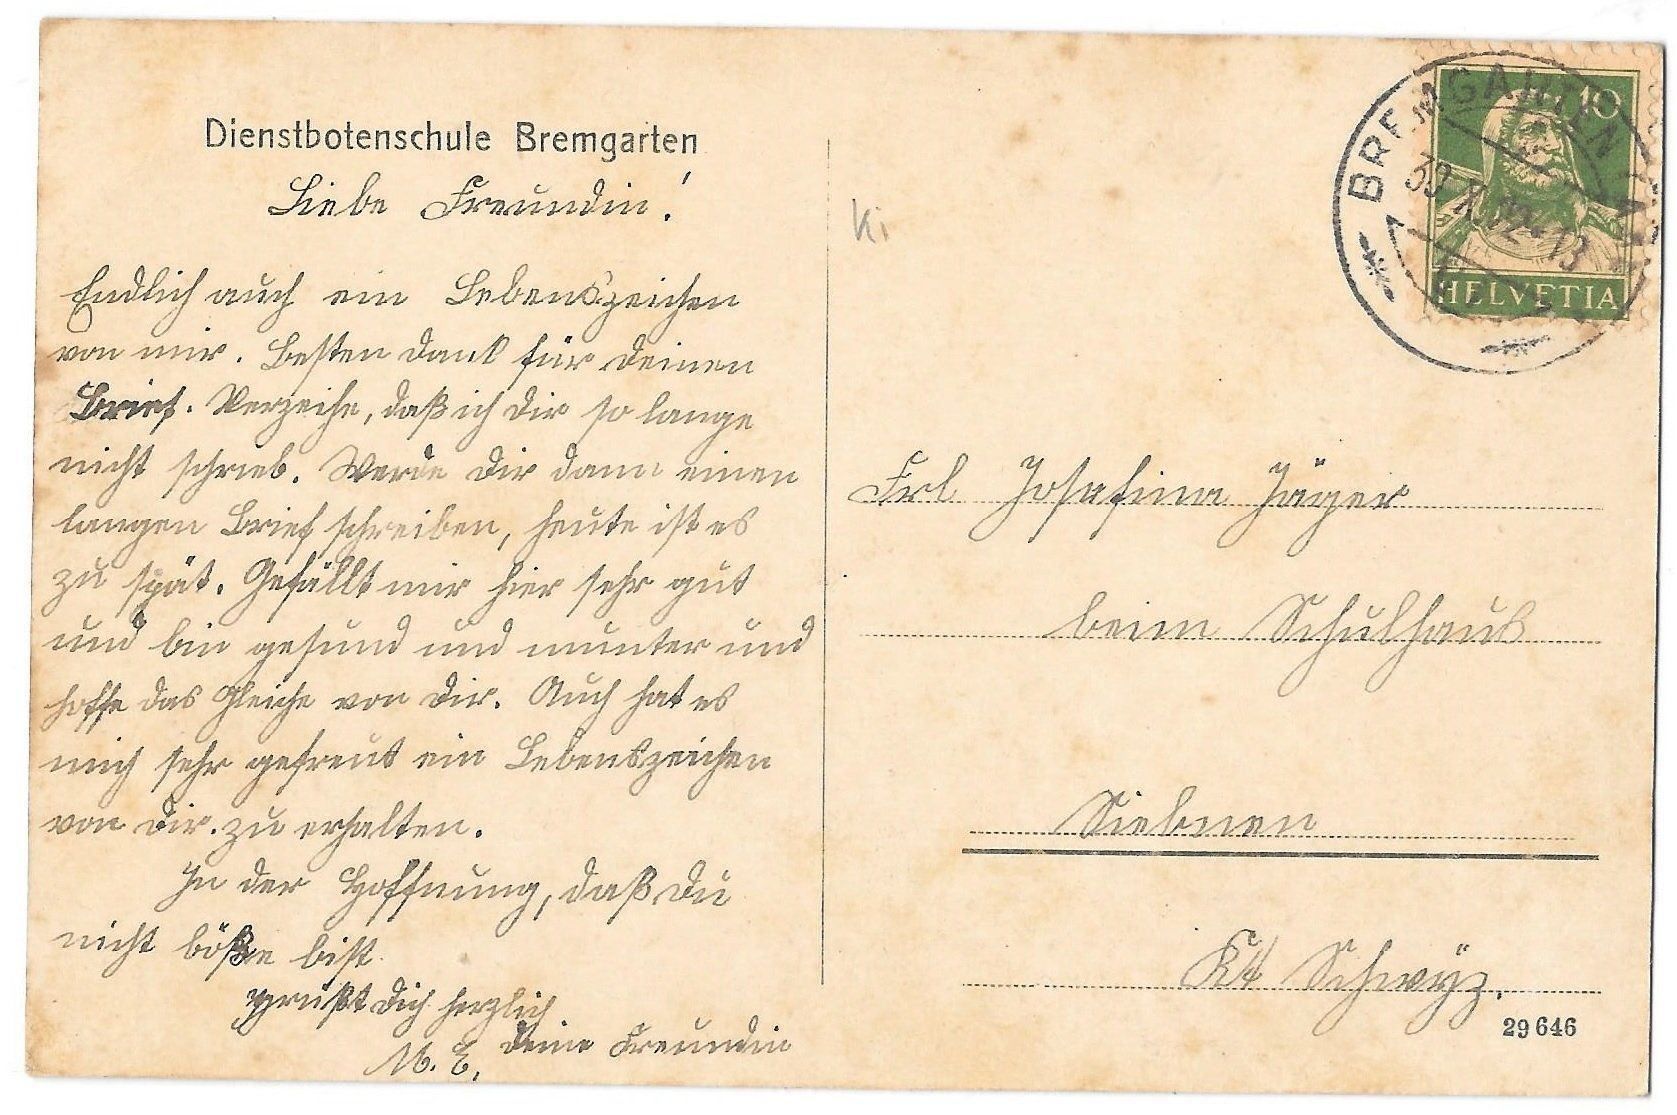 Dienstbotenschule Bremgarten
Liebe Freundin!
Endlich auch ein Lebenszeichen
von mir. Besten Dank für Deinen
Brief. Verzeihe, daß ich Dir so lange
nicht schrieb. Werde Dir dann einen
langen Brief schreiben, heute ist es
zu spät. Gefällt mir hier sehr gut
und bin gesund und munter und
hoffe das Gleiche von Dir. Auch hat es
mich sehr gefreut ein Lebenszeichen
von Dir zu erhalten.
In der Hoffnung, daß Du
nicht böße bist
grüßt Dich herzlich
Deine Freundin
M. E.
Ki
BREMGARTEN
30 X
13
10
HELVETIA
Frl Josefina Jäger
beim Schulhaus
Siebnen
Kt Schwÿz.
29646